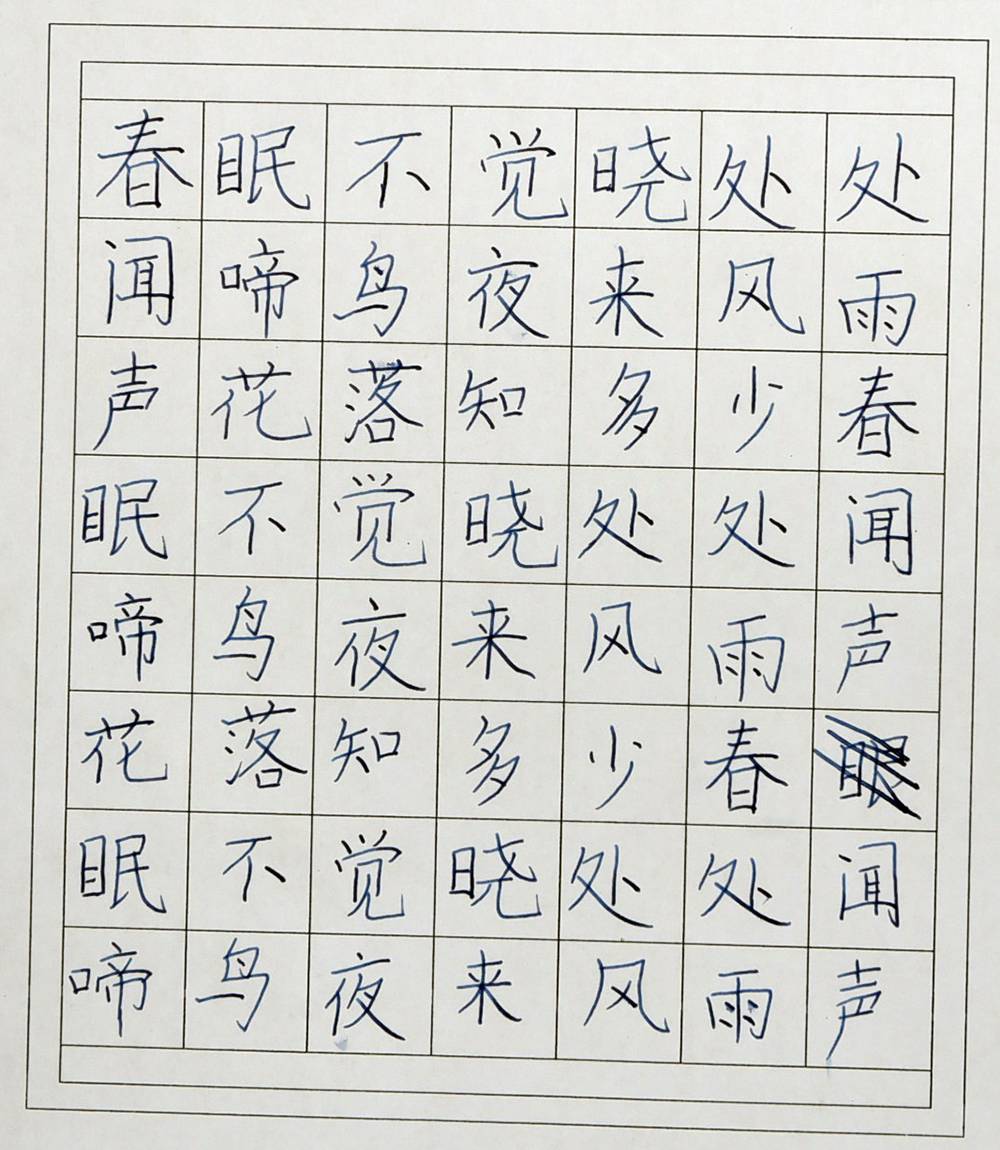 春眠不觉晓处处
闻啼鸟夜来风雨
声花落知多少春
眠不觉晓处处闻
啼鸟夜来风雨声
花落知多少春
眠不觉晓处处闻
啼鸟夜来风雨声